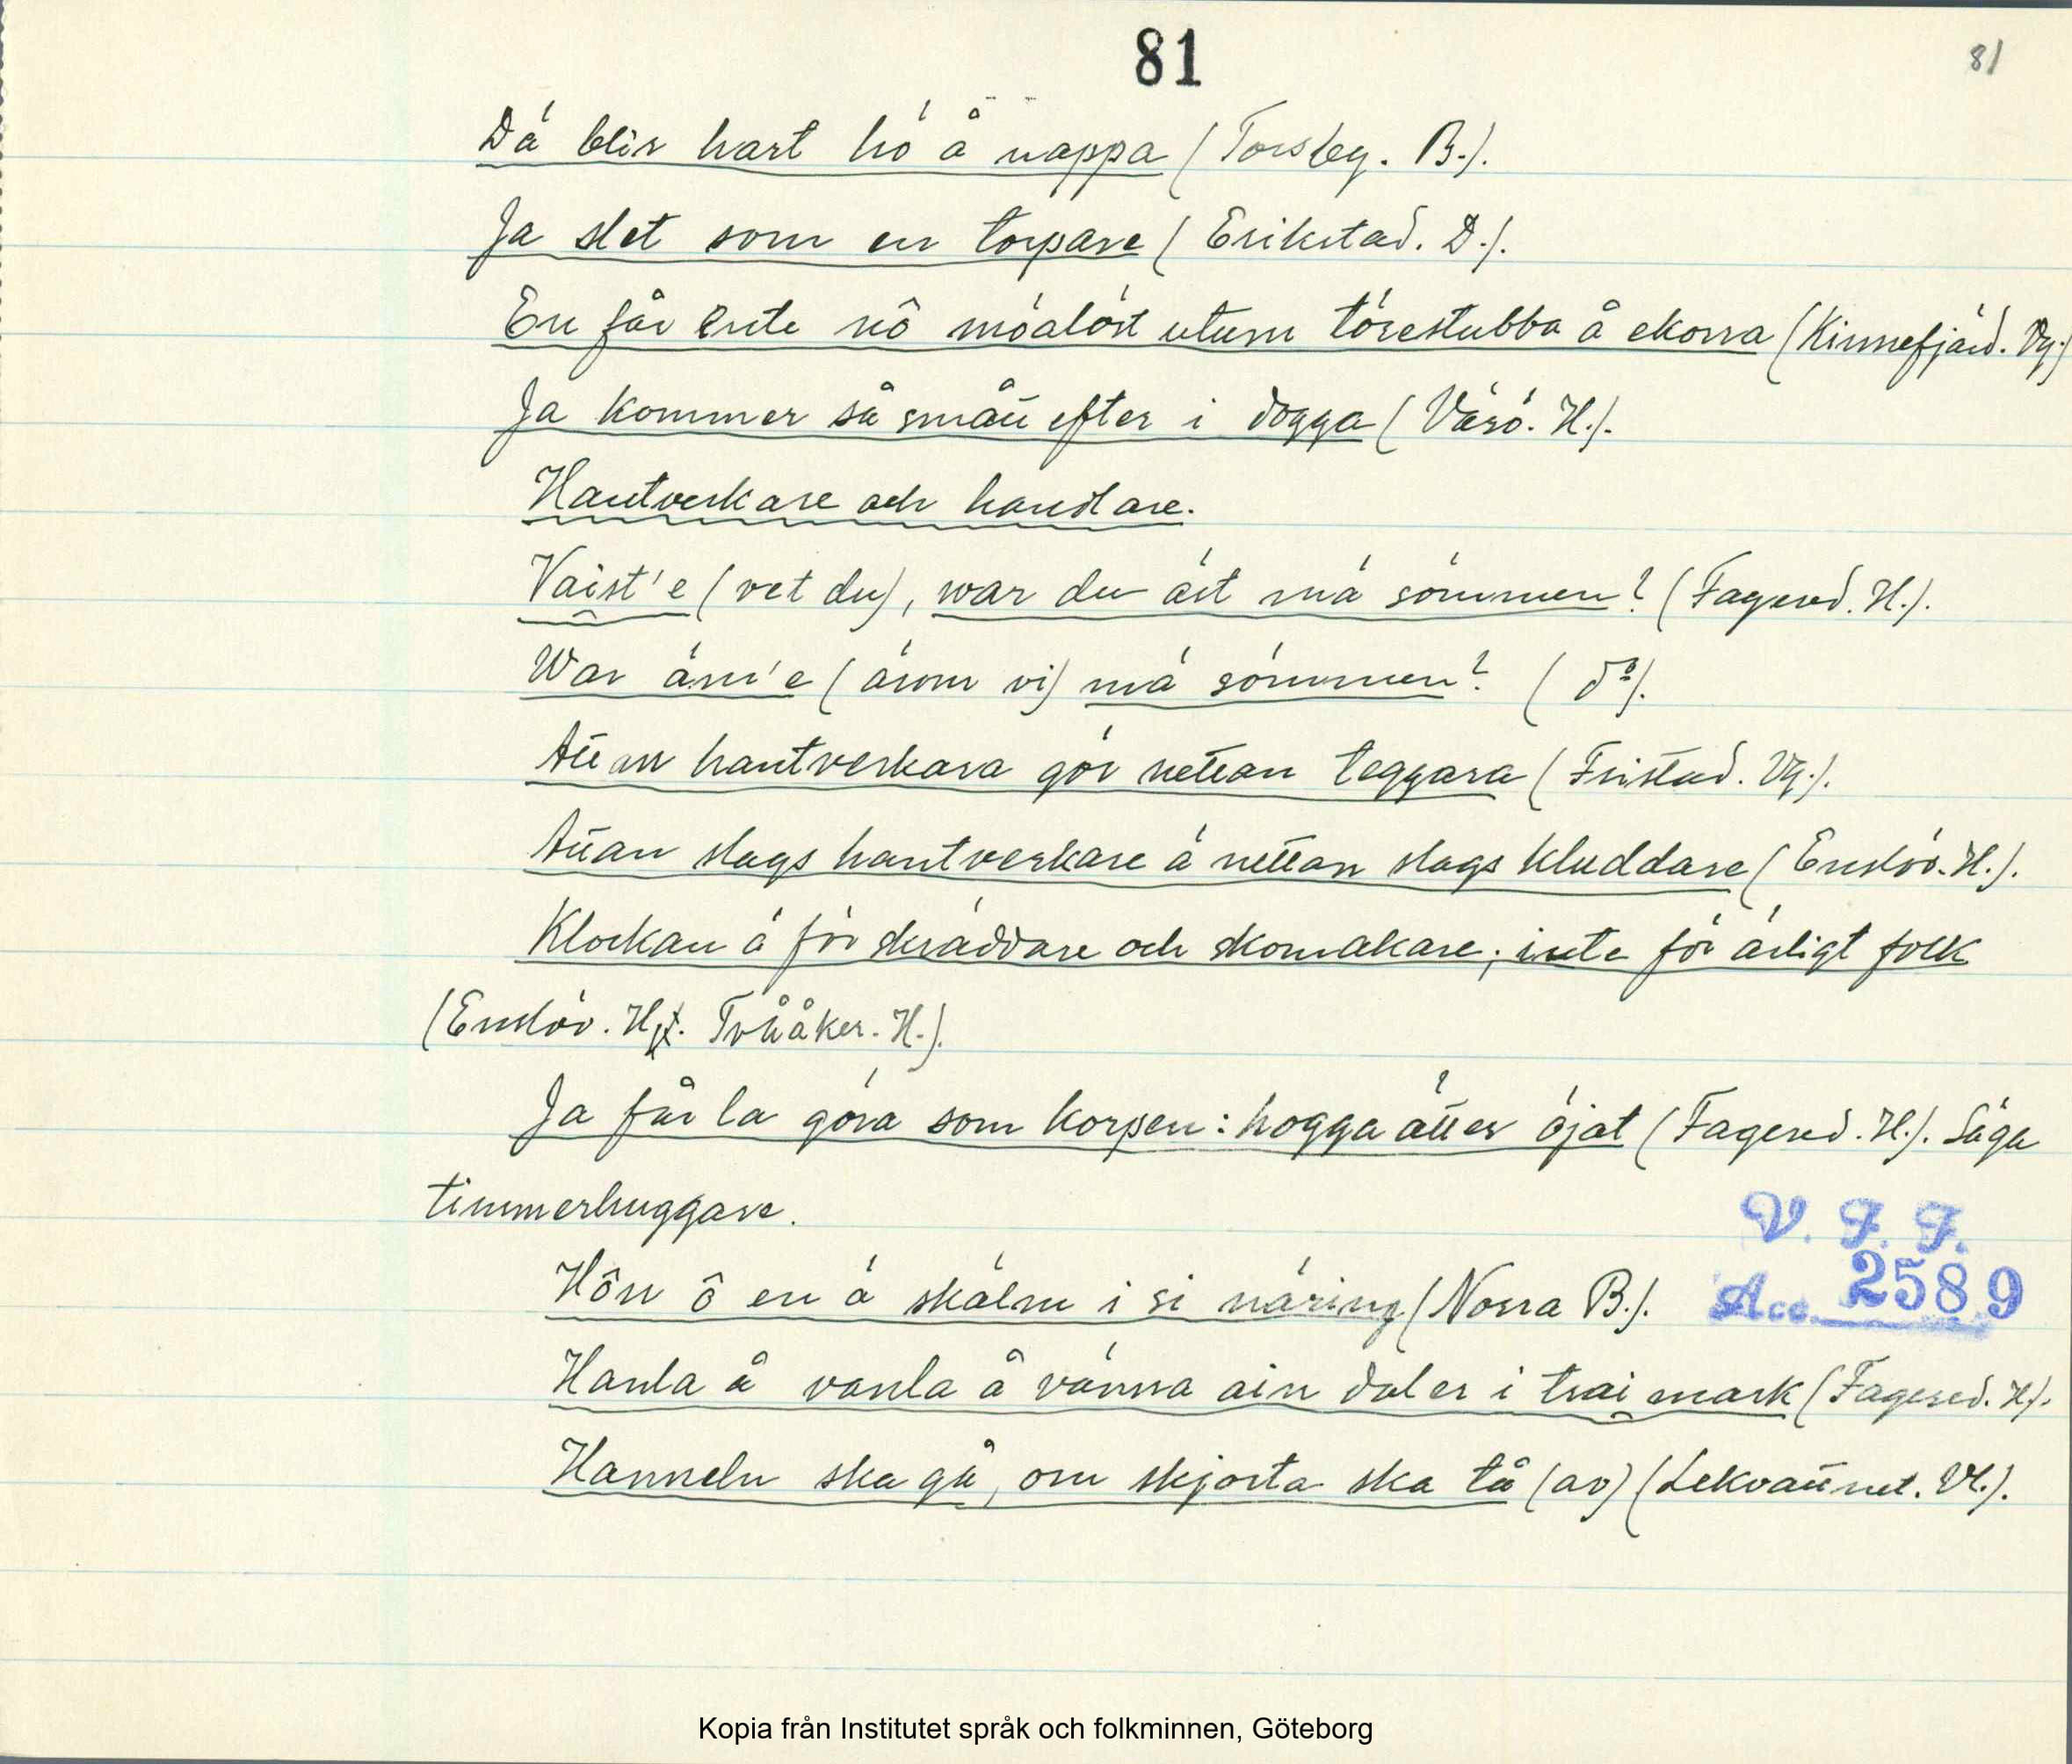 81
81
Dä blir hart hö å nappa (Torsby. B.).
Ja slet som en torpare (Erikstad. D.).
En får ente nô möalöst utum törestubba å ekorra (Kinnefjärd. Vg.)
Ja kommer så småu efter i dogga (Värö. H.).
Hantverkare och handlare.
Vaist'e (vet du), war du äst mä sömmen? (Fagered. H.).
War äm'e (ärom vi) mä sömmen? (dº).
Attan hantverkara gör nettan teggara (Fristad. Vg.).
Attan slags hantverkare ä nettan slags kluddare (Enslöv. H.).
Klockan ä för skräddare och skomakare; inte för ärligt folk
(Enslöv. H. Tvååker. H.).
Ja får la göra som korpen: hogga åtter öjat (Fagered. H.). Säga
timmerhuggare.
Hôn ô en ä skälm i si näring (Norra B.).
Hanla å vanla å vänna ain daler i trai mark (Fagered. H.).
Hanneln ska gå, om skjorta ska tå (av) (Lekvattnet. Vl.).
V. F. F.
Acc. 2589
Kopia från Institutet språk och folkminnen, Göteborg